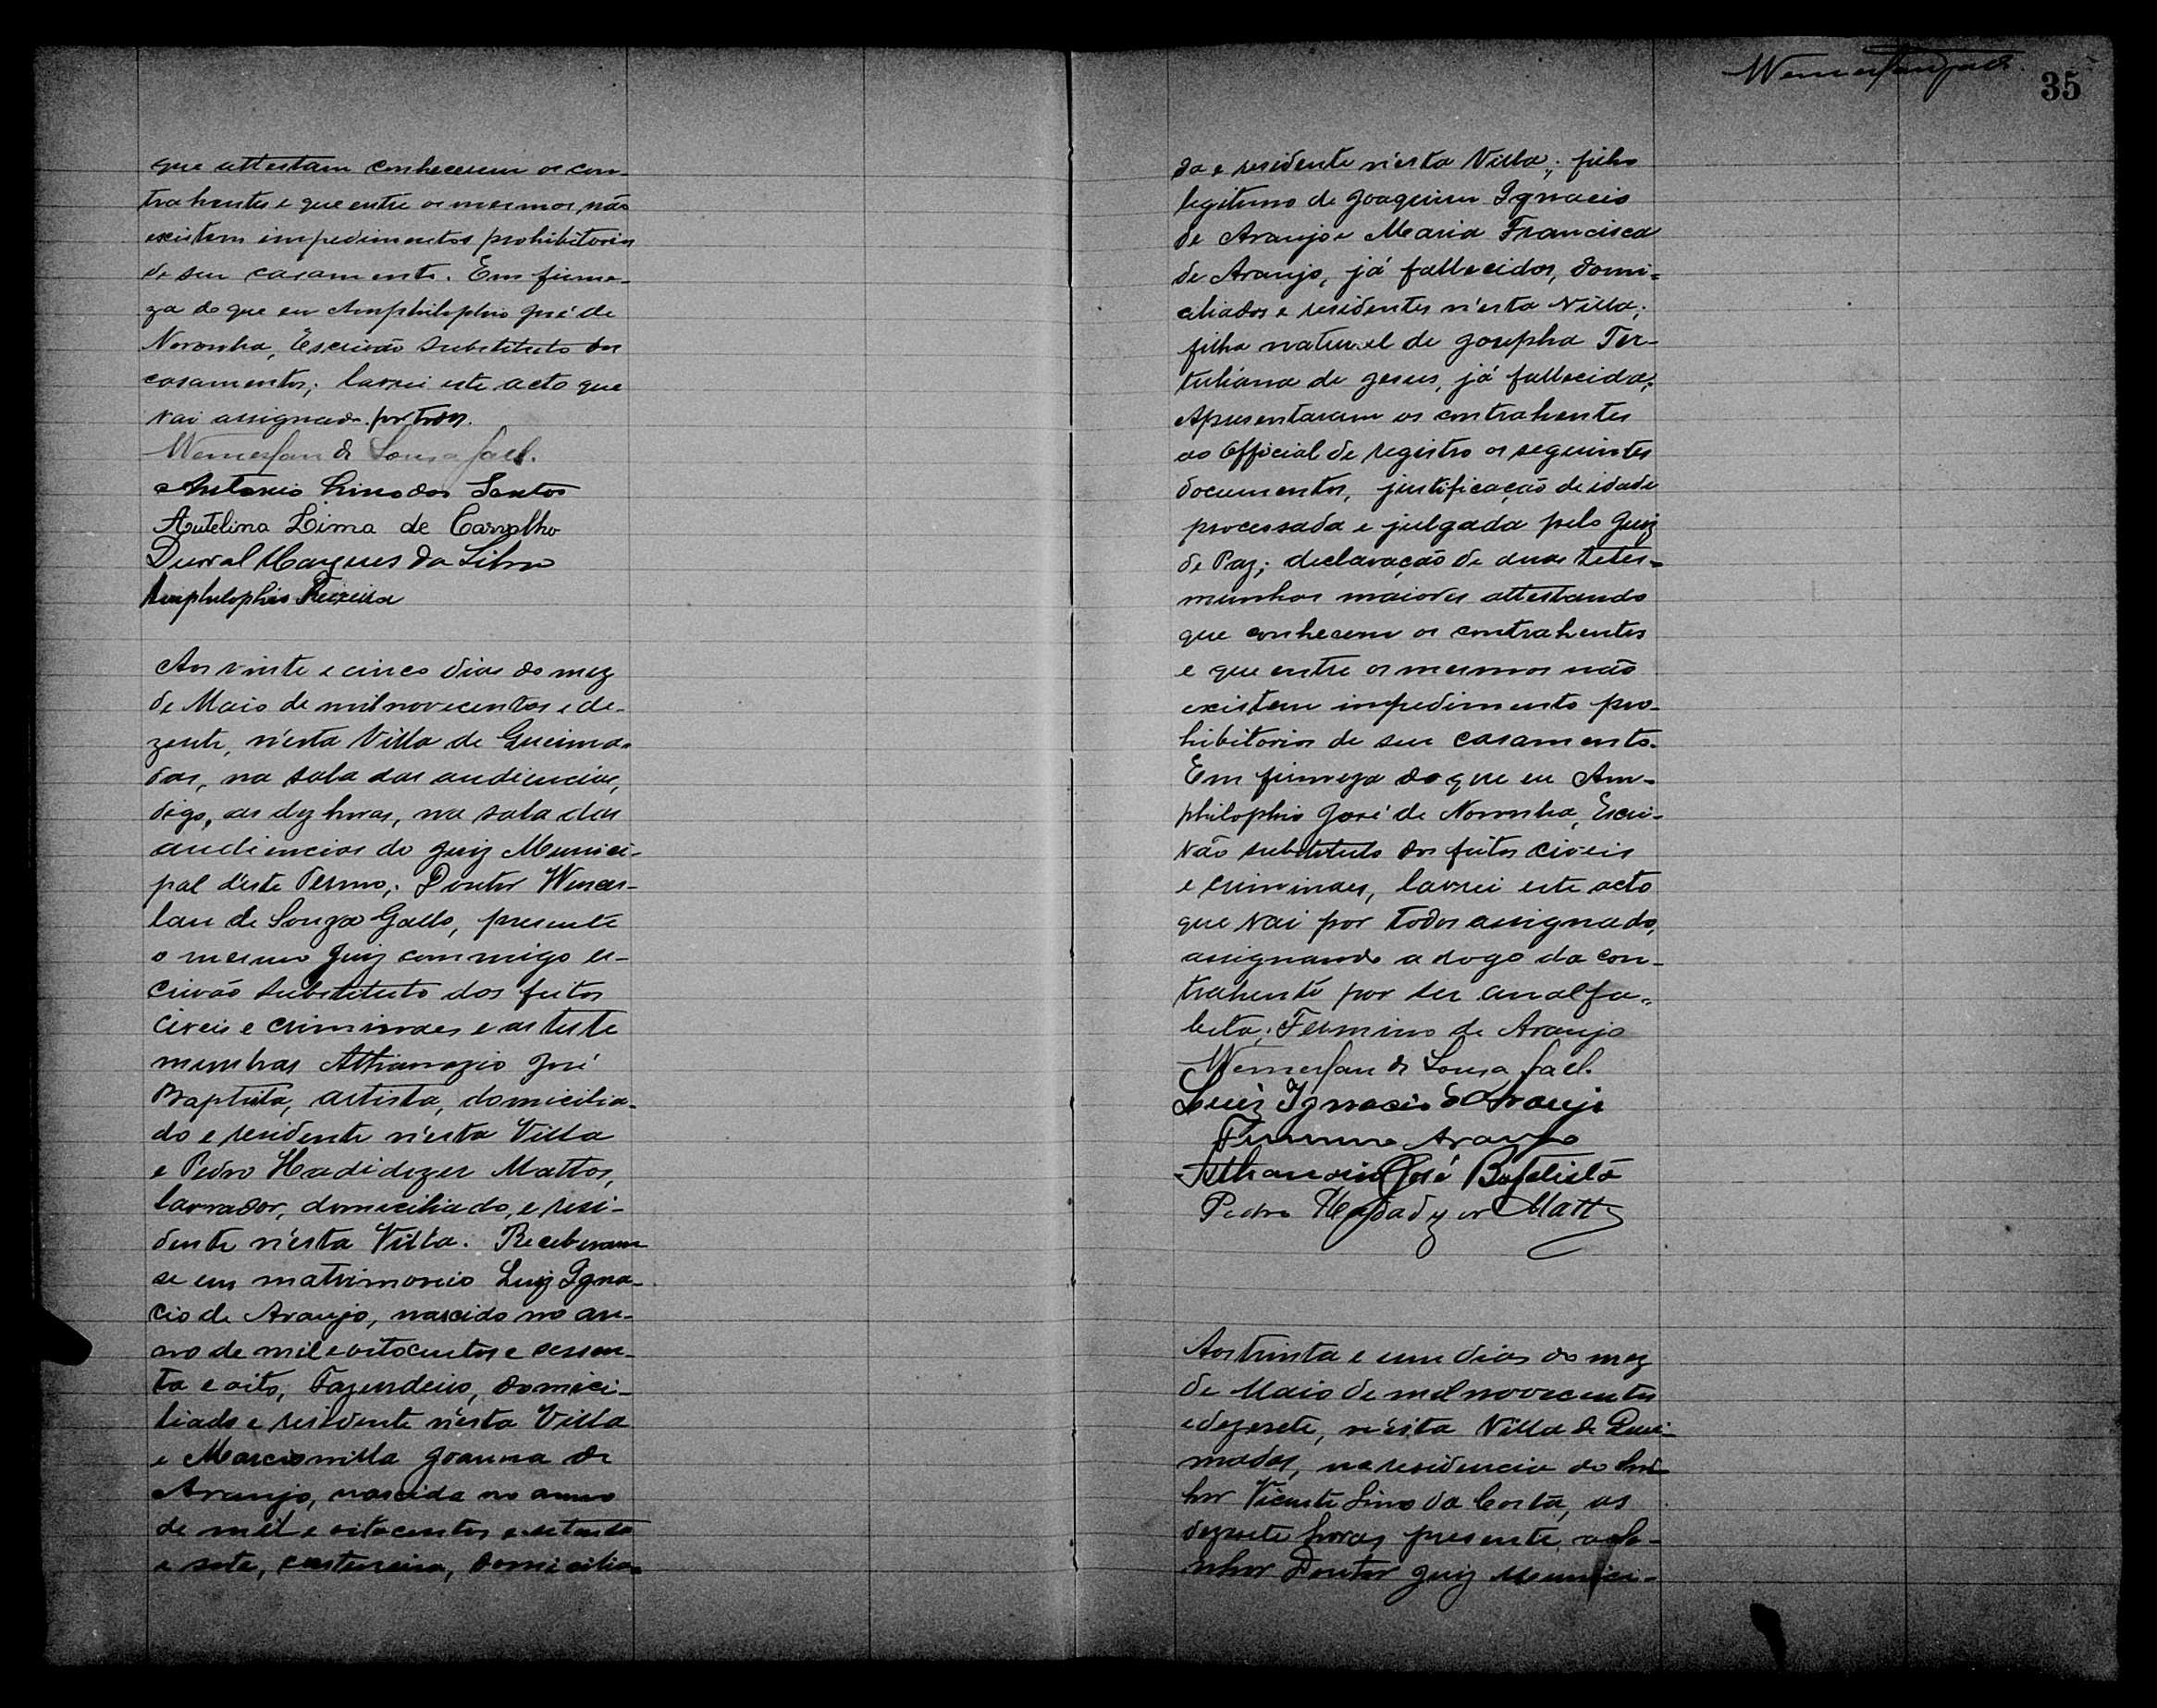 que attestam conhecerem os con-
trahentes e que entre os mesmos, não
existem impedimentos prohibitorios
de seu casamento. Em firme-
za do que eu Amphilophio José de
Noronha, Escrivão substituto dos
casamentos; lavrei este acto que
vai assignado por todos.
Wenceslau de Sousa Gall.
Antonio Lino dos Santos
Autelina Lima de Carvalho
Durval Marques da Silva
Amphilophio Teixeira
Aos vinte e cinco dias do mez
de Maio de mil novecentos e de-
zesete, n'esta Villa de Queima-
das, na sala das audiencias,
digo, as dez horas, na sala das
audiencias do Juiz Munici-
pal d'este Termo; Doutor Wences-
lau de Souza Gallo, presente
o mesmo Juiz commigo es-
crivão substituto dos feitos
civeis e criminaes e as teste
munhas Athanazio José
Baptista, artista, domicilia-
do e residente n'esta Villa
e Pedro Mattos,
lavrador, domiciliado, e resi-
dente n'esta Villa. Receberam
se em matrimonio Luiz Igna-
cio de Araujo, nascido no an-
no de mil e oitocentos e sessen-
ta e oito, Fazendeiro, domici-
liado e residente n'esta Villa
e Marcionilla Joanna de
Araujo, nascida no anno
de mil e oitocentos e setenta
e sete, costureira, domicilia-
35
da e residente n'esta Villa; filho
legitimo de Joaquim Ignacio
de Araujo e Maria Francisca
de Araujo, já fallecidos, domi-
ciliados e residentes n'esta Villa;
filha natural de Josepha Ter-
tuliana de Jesus, já fallecida;
Apresentaram os contrahentes
ao Official de registro os seguintes
documentos, justificação de idade
processada e julgada pelo Juiz
de Paz; declaração de duas tetes-
munhas maiores attestando
que conhecem os contrahentes
e que entre os mesmos não
existem impedimento pro-
hibitorios de seu casamento.
Em firmeza do que eu Am-
philophio José de Noronha, Escri-
vão substituto dos feitos civeis
e criminaes, lavrei este acto
que vai por todos assignado,
assignando a rogo da con-
trahente por ser analfa-
beta; Fermino de Araujo
Wenceslau de Sousa Gall.
Luiz Ignacio de Araujo
Firmino Araujo
Athanasio José Baptista
Pedro Matt
Aos trinta e um dias do mez
de Maio de mil novecentos
e dezesete, n'esta Villa de Quei-
madas, na residencia do Se-
hor Vicente Lino da Costa, as
dezesete horas presente o Se-
nhor Doutor Juiz Munici-